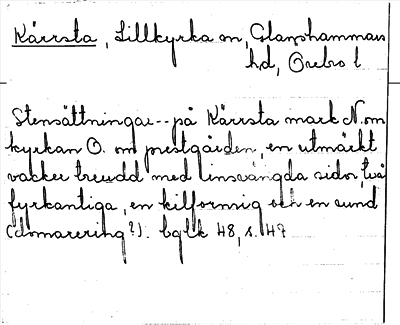 Kärrsta, Lillkyrka sn, Glanshammars
hd, Örebro l
Stensättningar -- på Kärrsta mark N. om
kyrkan O. om prestgården, en utmärkt
vacker treudd med insvängda sidor, två
fyrkantiga, en kilformig och en rund
(domarering?). bglk 48, s. 147